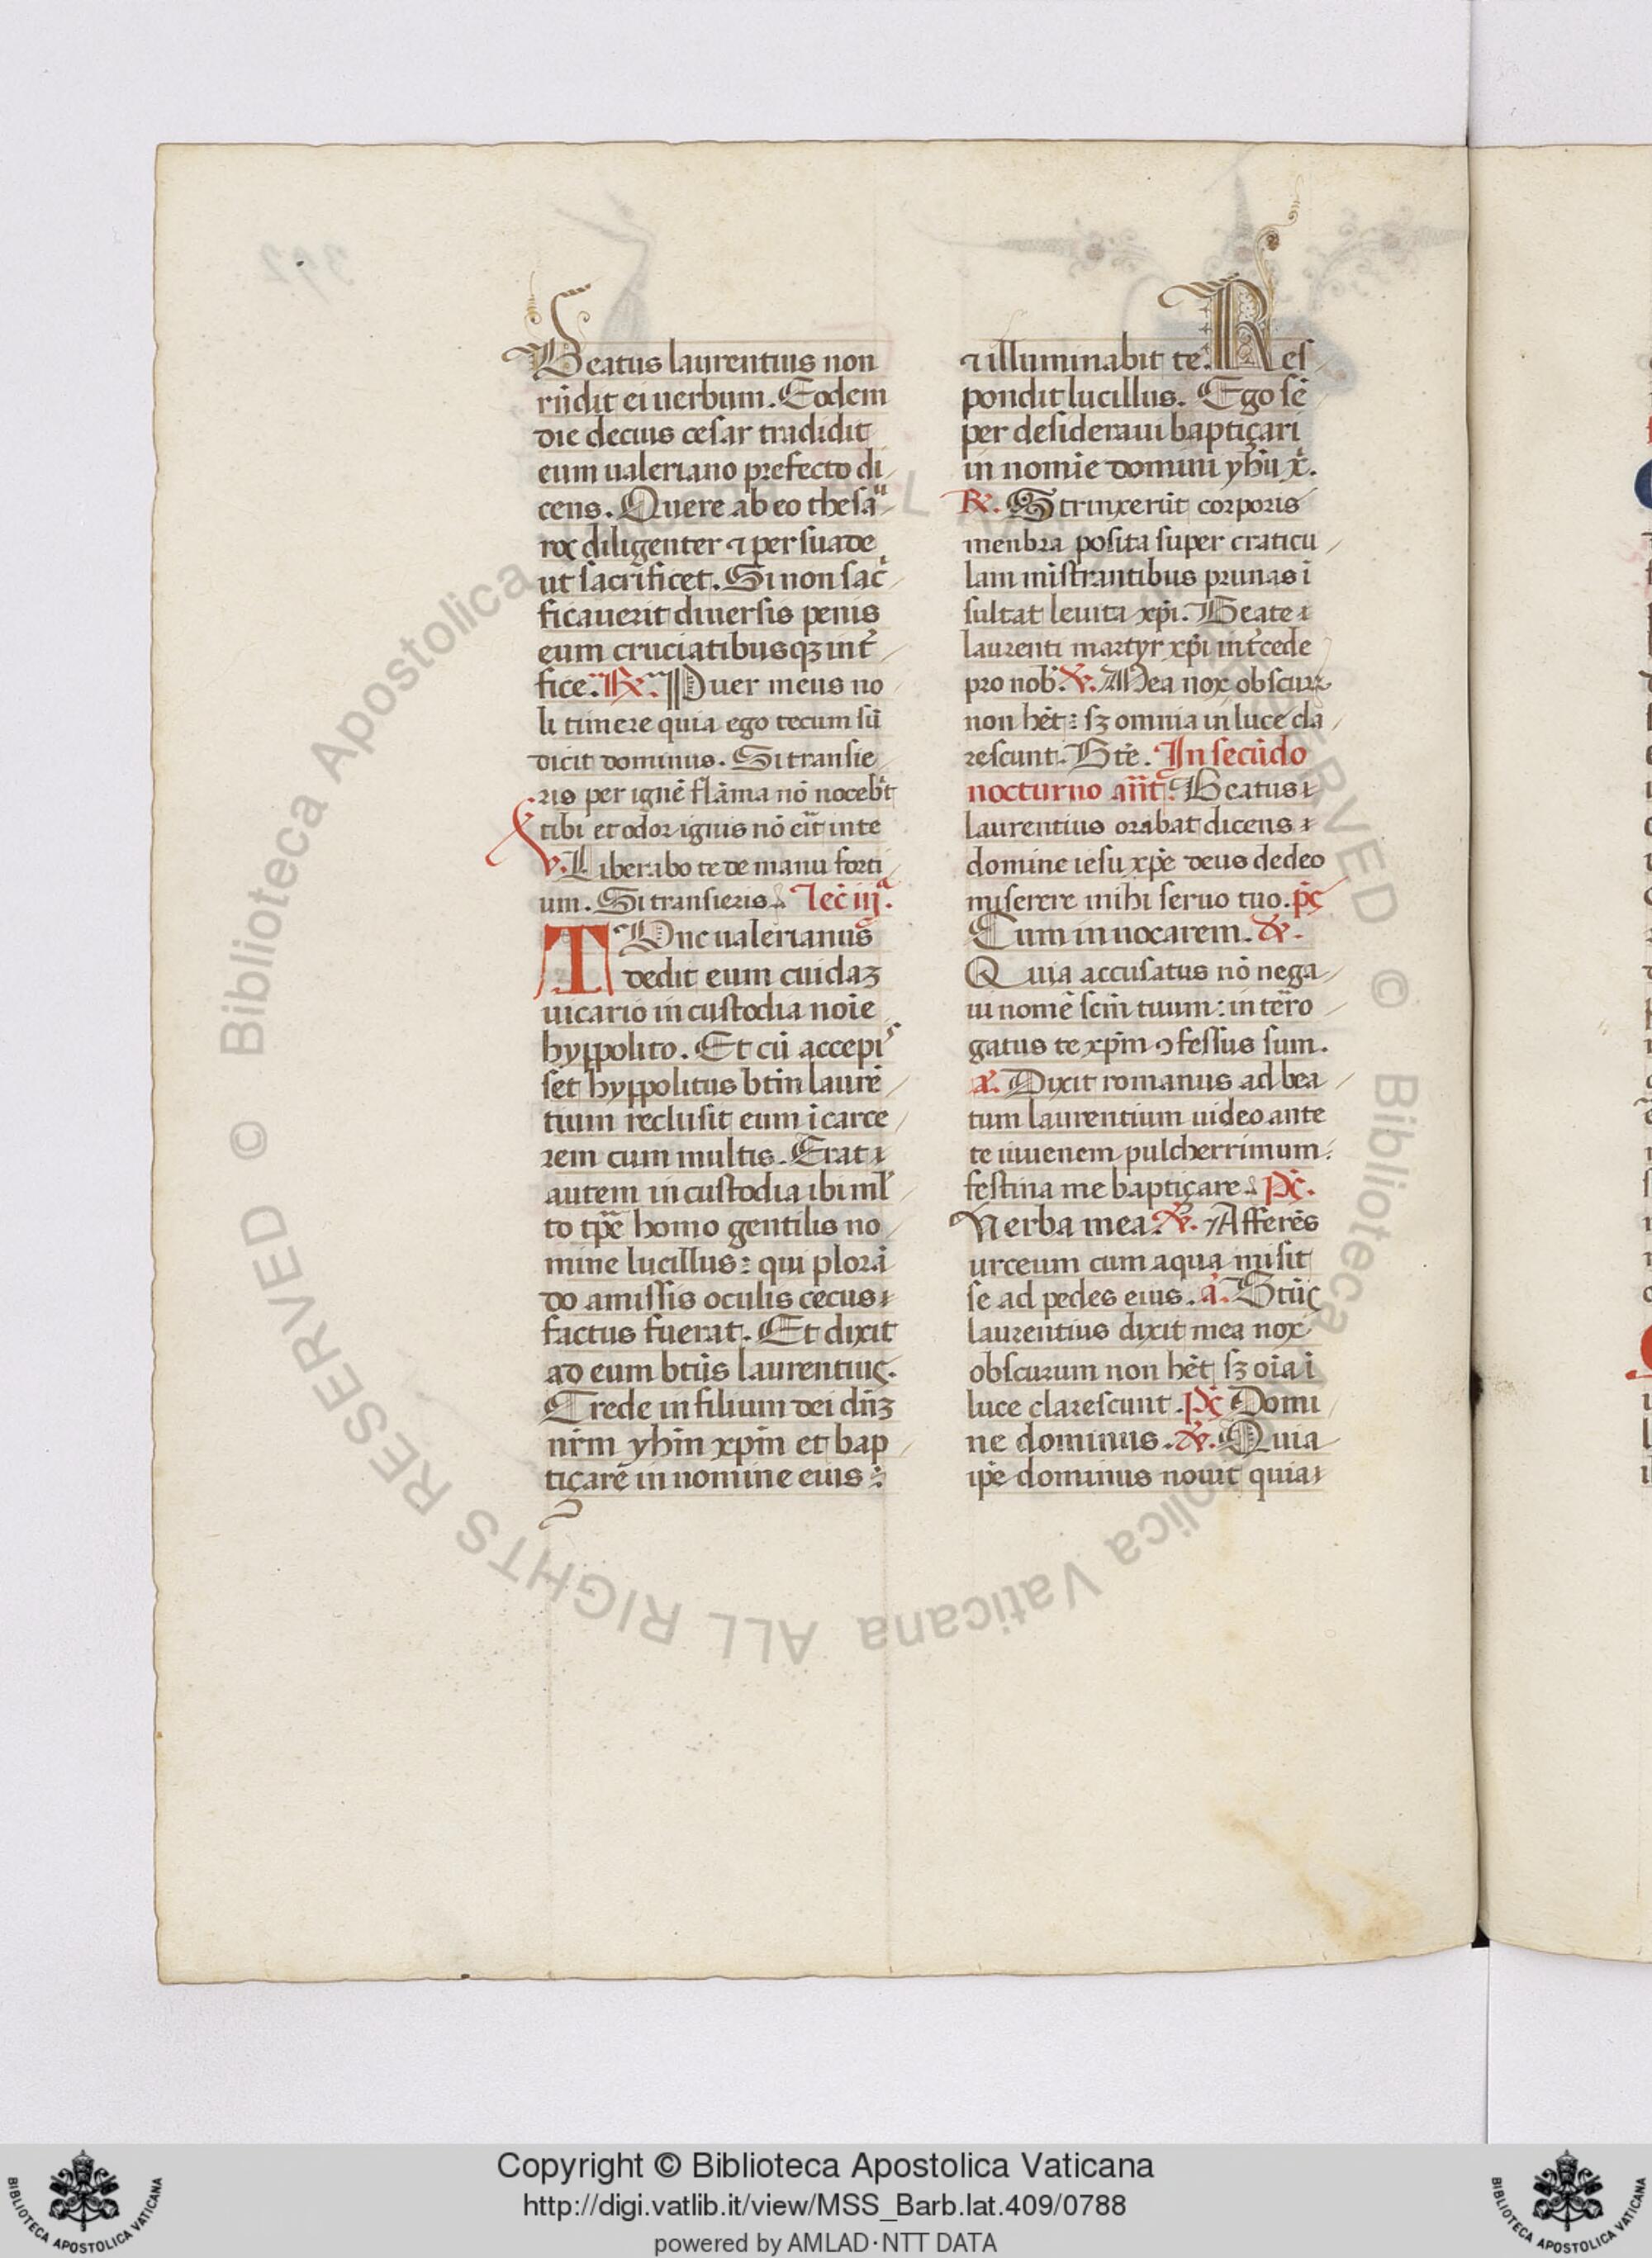 Beatus laurentius non
rñdit ei uerbum. Eodem
die decius cesar tradidit
eum ualeriano prefecto di
cens. Quere ab eo thesau
roꝝ diligenter ⁊ persuade
ut sacrificet. Si non sac̃
ficauerit diuersis penis
eum cruciatibusqꝫ int̃
fice. ℞. Puer meus no
li timere quia ego tecum sũ
dicit dominus. Si transie
ris per ignẽ flãma nõ nocebit
tibi et odor ignis nõ eĩt in te
℣. Liberabo te de manu forti
um. Si transieris. lec̃ iijª.
TUnc ualerianus
dedit eum cuidaꝫ
uicario in custodia noĩe
hyppolito. Et cũ accepis
set hyppolitus btm̃ laurẽ
tium reclusit eum ĩ carce
rem cum multis. Erat
autem in custodia ibi ml̃
to tp̃e homo gentilis no
mine lucillus: qui plorã
do amissis oculis cecus
factus fuerat. Et dixit
ad eum btũs laurentius.
Crede in filium dei dñꝫ
nr̃m yhm̃ xp̃m et bap
tiçare in nomine eius:
⁊ illuminabit te. Res
pondit lucillus. Ego sẽ
per desideraui baptiçari
in nomĩe domini yhũ x̃.
℞. Strinxerũt corporis
menbra posita super craticu
lam mĩstrantibus prunas ĩ
sultat leuita xp̃i. Beate
laurenti martyr xp̃i int̃cede
pro nob̃. ℣. Mea nox obscurũ
non hẽt: sꝫ omnia in luce cla
rescunt. Bt̃e. In secũdo
nocturno añt. Beatus
laurentius orabat dicens
domine iesu xp̃e deus de deo
miserere mihi seruo tuo. p̃s
Cum inuocarem. ℣.
Quia accusatus nõ nega
ui nomẽ scm̃ tuum: inter̃ro
gatus te xp̃m ꝯfessus sum.
ã. Dixit romanus ad bea
tum laurentium uideo ante
te iuuenem pulcherrimum:
festina me baptiçare. Ps̃.
Verba mea. ℣. Afferẽs
urceum cum aqua misit
se ad pedes eius. ã. Btũs
laurentius dixit mea nox
obscurum non hẽt sꝫ oĩa ĩ
luce clarescunt. Ps̃ Domi
ne dominus. ℣. Quia
ip̃e dominus nouit quia
Copyright © Biblioteca Apostolica Vaticana
http://digi.vatlib.it/view/MSS_Barb.lat.409/0788
powered by AMLAD·NTT DATA
BIBLIOTECA APOSTOLICA VATICANA
BIBLIOTECA APOSTOLICA VATICANA
© Biblioteca Apostolica Vaticana ALL RIGHTS RESERVED
© Biblioteca Apostolica Vaticana ALL RIGHTS RESERVED